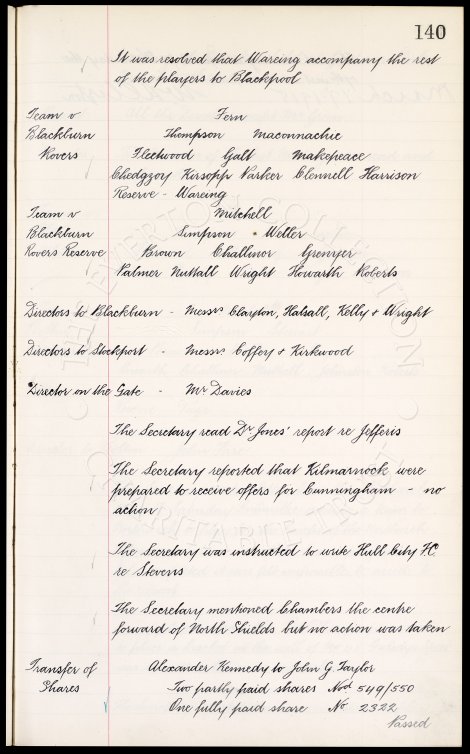 140
It was resolved that Wareing accompany the rest
of the players to Blackpool
Team v Fern
Blackburn Thompson Maconnachie
Rovers Fleetwood Galt Makepeace
Chedgzoy Kirsopp Parker Clennell Harrison
Reserve - Wareing
Team v Mitchell
Blackburn Simpson Weller
Rovers Reserve Brown Challinor Grenyer
Palmer Nuttall Wright Howarth Roberts
Directors to Blackburn - Messrs Clayton, Halsall, Kelly & Wright
Directors to Stockport - Messrs Coffey & Kirkwood
Director on the Gate - Mr Davies
The Secretary read Dr Jones' report re Jefferis
The Secretary reported that Kilmarnock were
prepared to receive offers for Cunningham - no
action
The Secretary was instructed to write Hull City FC
re Stevens
The Secretary mentioned Chambers the centre
forward of North Shields but no action was taken
Transfer of Alexander Kennedy to John G. Taylor
Shares Two partly paid shares Nos 549/550
One fully paid share No 2322
Passed
THE EVERTON COLLECTION
CHARITABLE TRUST